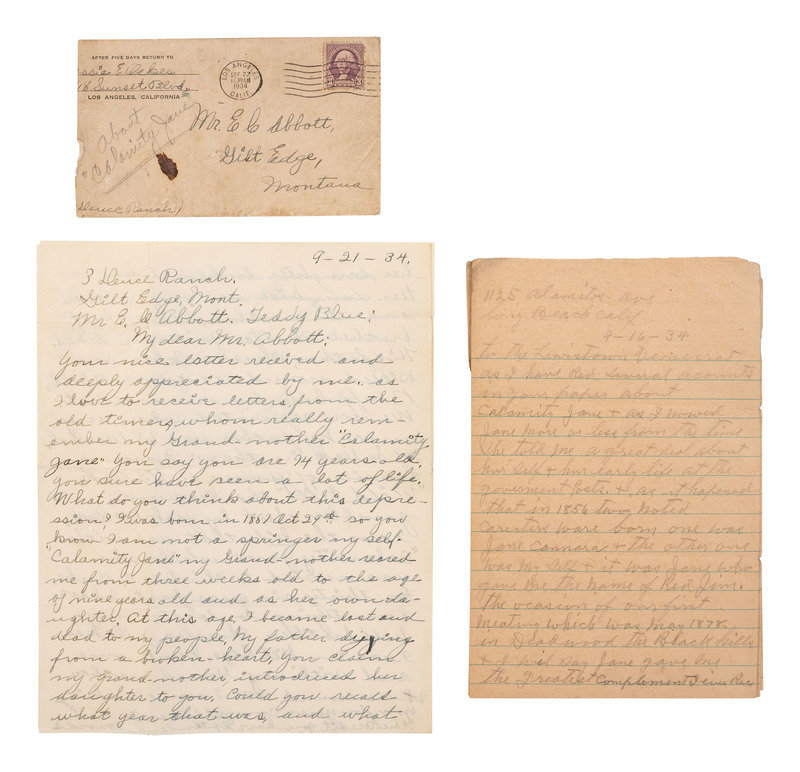 AFTER FIVE DAYS RETURN TO
E. Oakes
Sunset Blvd.
LOS ANGELES, CALIFORNIA
About
"Calamity Jane"
Deuce Ranch)
LOS ANGELES
SEP 22
1130AM
1934
CALIF.
Mr. E C Abbott,
Gilt Edge,
Montana
9-21-34.
3 Deuce Ranch.
Gilt Edge, Mont.
Mr E. C Abbott. Teddy Blue;
My dear Mr. Abbott;
Your nice letter received and
deeply appreciated by me. as
I love to receive letters from the
old timers whom really rem-
ember my Grand-mother "Calamity
Jane" You say you are 74 years old,
you sure have seen a lot of life.
What do you think about this depre-
ssion? I was born in 1887 Oct 29th so you
know I am not a springer my self.
"Calamity Jane" my Grand-mother reared
me from three weeks old to the age
of nine years old and as her own da-
ughter. At this age, I became lost and
dead to my people, My father dieying
from a broken-heart, You claim
my grand-mother introduced her
daughter to you. Could you recall
what year that was, and what
1125 alamitos. ave
long Beach Calif
4-16-34
To the Lewistown Democrat
as I have Red several accounts
in your paper about
Calamity Jane & as I
Jane more or less from the time
She told me a great deal about
her Self & her early life at the
goverment Posts. & as it hapened
that in 1856 two Noted
ware born one was
Jane Cannara & the other one
was my Self & it was Jane who
gave me the name of Red Jim.
the ocasion of our first
meating which was May 1878
in Deadwood the Black hills
& I wil say Jane gave me
the Greatest Complement I ever